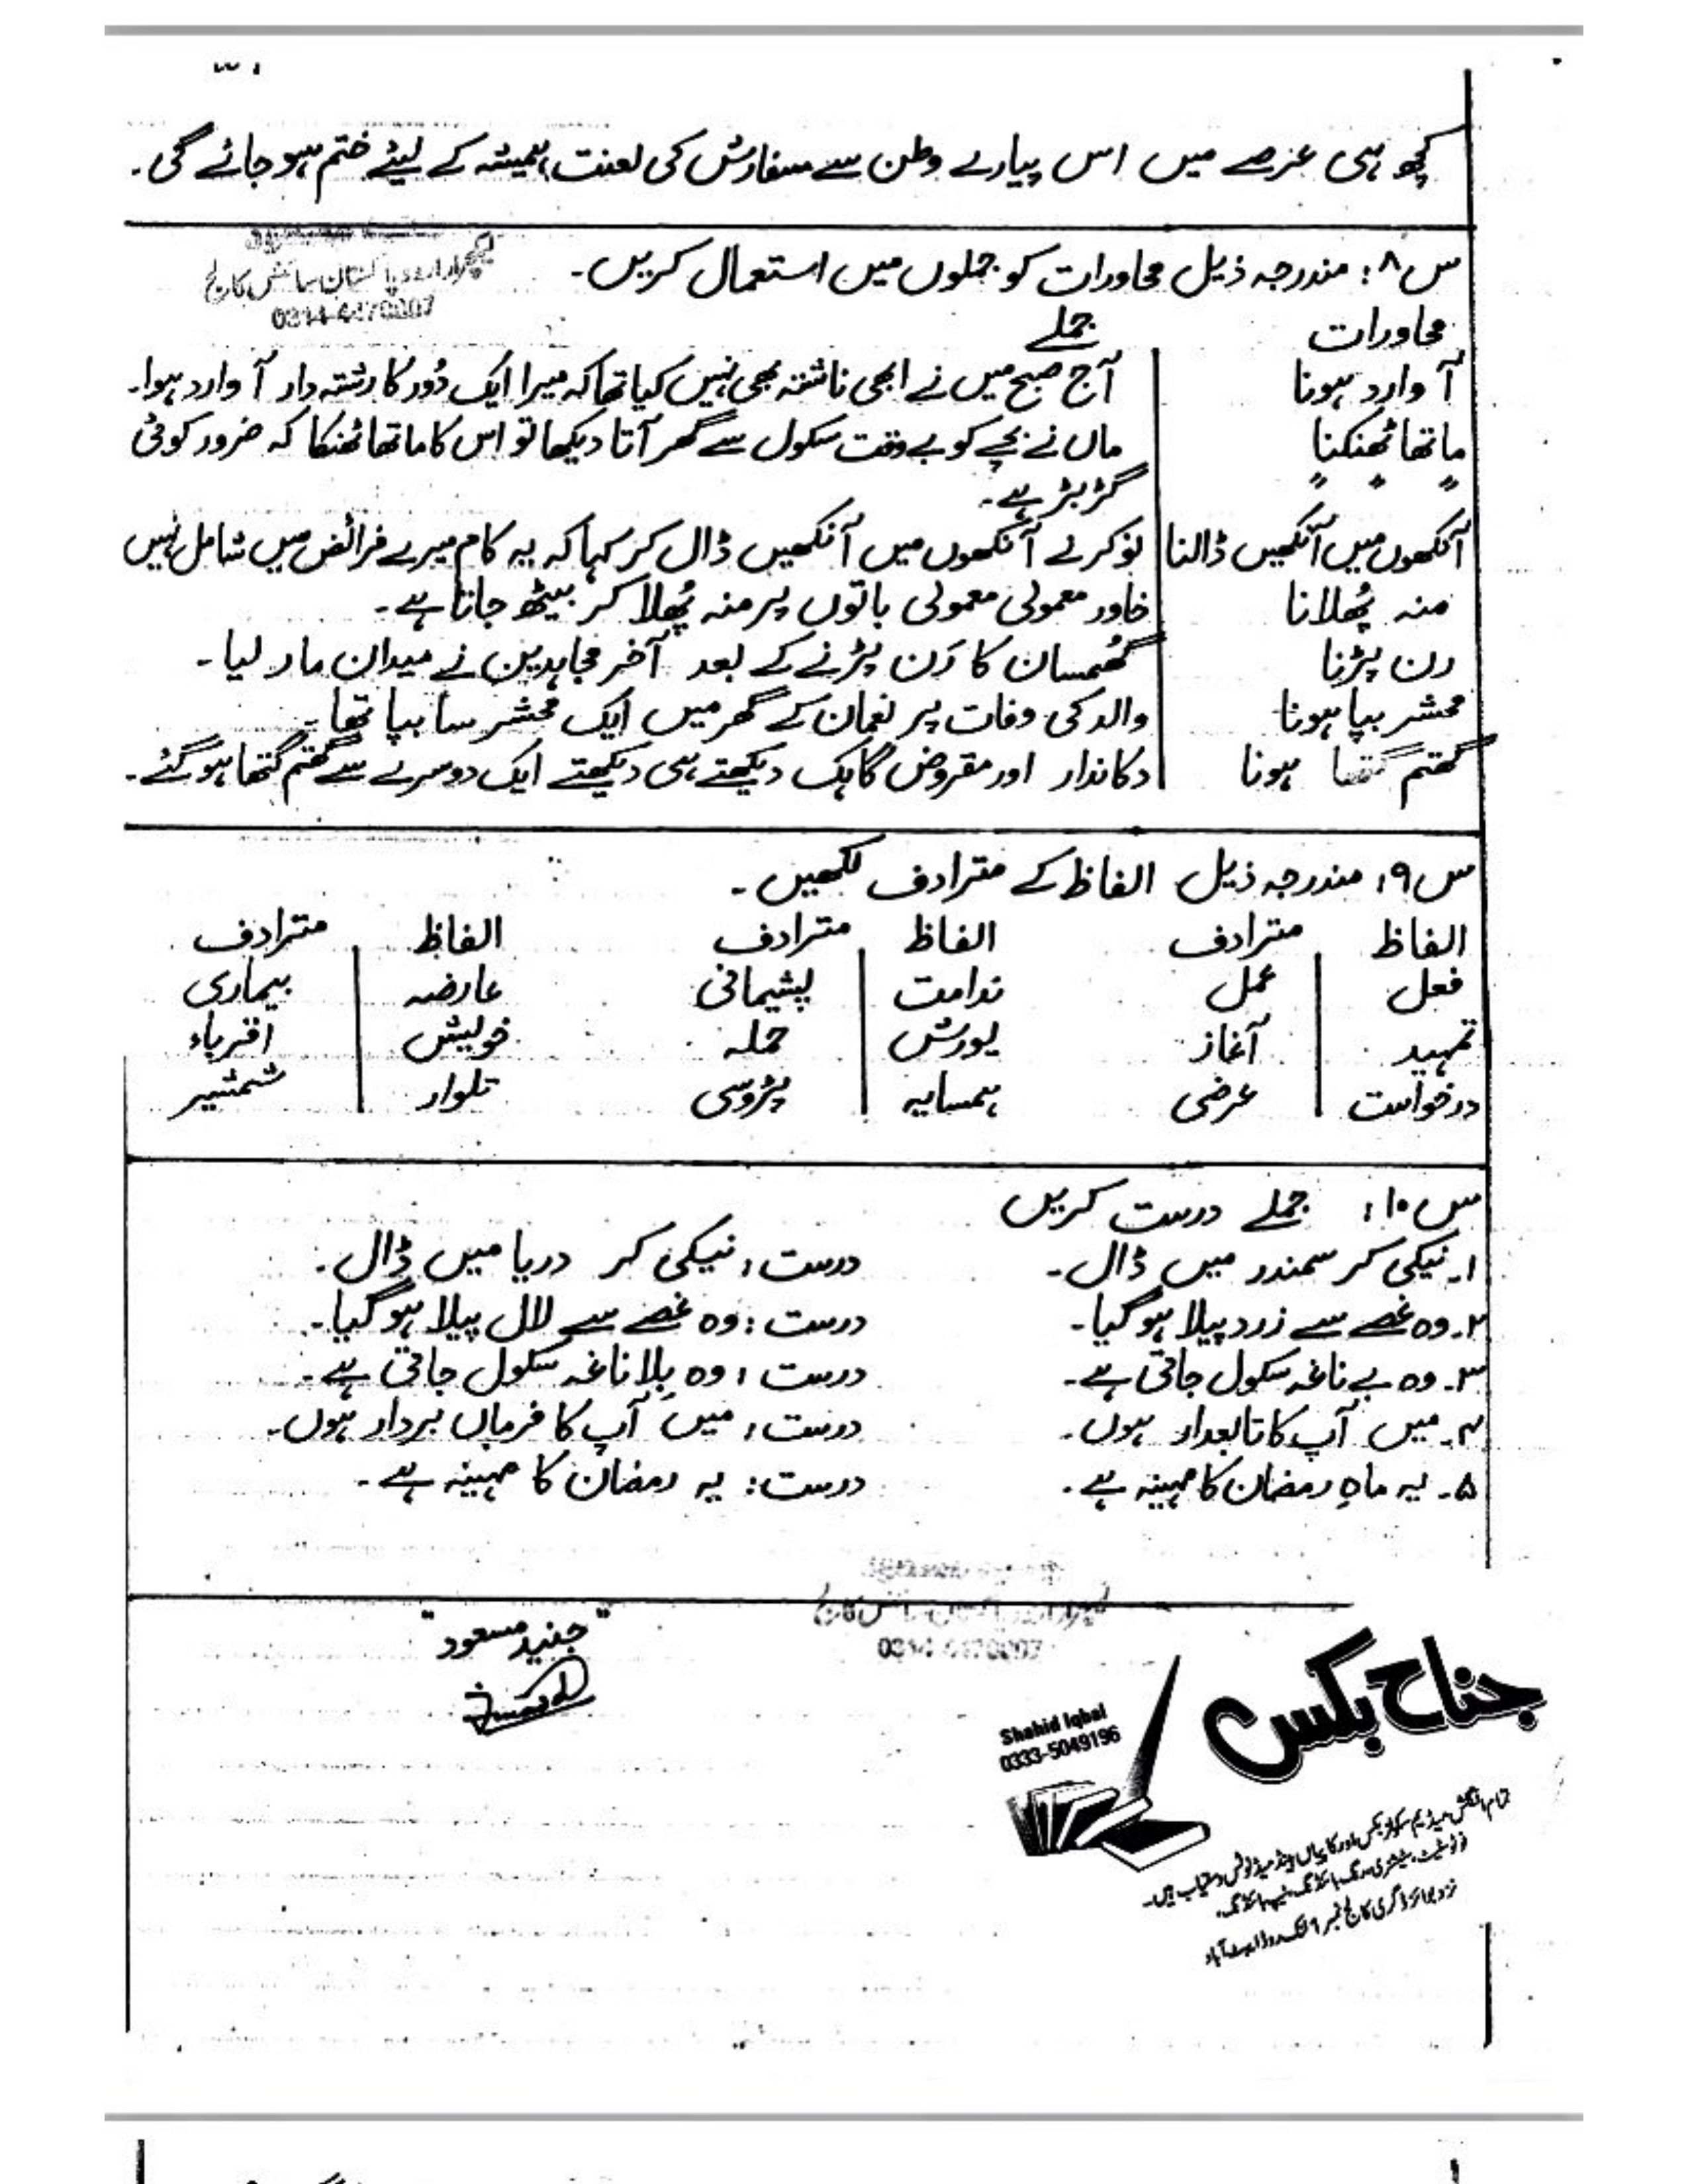 کچھ ہی عرصے میں اس پیارے وطن سے سفارش کی لعنت ہمیشہ کے لیئے ختم ہو جائے گی۔
لیکچرار اردو پاکستان سائنس کالج
س۸: مندرجہ ذیل محاورات کو جملوں میں استعمال کریں۔
محاورات جملے
آ وارد ہونا آج صبح میں نے ابھی ناشتہ بھی نہیں کیا تھا کہ میرا ایک دُور کا رشتہ دار آ وارد ہوا۔
ماتھا ٹھنکنا ماں نے بچے کو بے وقت سکول سے گھر آتا دیکھا تو اس کا ماتھا ٹھنکا کہ ضرور کوئی
گڑ بڑ ہے۔
آنکھوں میں آنکھیں ڈالنا نوکر نے آنکھوں میں آنکھیں ڈال کر کہا کہ یہ کام میرے فرائض میں شامل نہیں
منہ پُھلانا خاور معمولی معمولی باتوں پر منہ پُھلا کر بیٹھ جاتا ہے۔
رن پڑنا گھُمسان کا رَن پڑنے کے بعد آخر مجاہدین نے میدان مار لیا۔
محشر بپا ہونا والد کی وفات پر نعمان کے گھر میں ایک محشر سا بپا تھا۔
گتھم گتھا ہونا دکاندار اور مقروض گاہک دیکھتے ہی دیکھتے ایک دوسرے سے گتھم گتھا ہو گئے۔
س۹: مندرجہ ذیل الفاظ کے مترادف لکھیں۔
الفاظ مترادف الفاظ مترادف الفاظ مترادف
فعل عمل ندامت پشیمانی عارضہ بیماری
تمہید آغاز یورش حملہ خویش اقرباء
درخواست عرضی ہمسایہ پڑوسی تلوار شمشیر
س۱۰: جملے درست کریں
۱۔ نیکی کر سمندر میں ڈال۔ درست: نیکی کر دریا میں ڈال۔
۲۔ وہ غصے سے زرد پیلا ہو گیا۔ درست: وہ غصے سے لال پیلا ہو گیا۔
۳۔ وہ بے ناغہ سکول جاتی ہے۔ درست: وہ بِلا ناغہ سکول جاتی ہے۔
۴۔ میں آپ کا تابعدار ہوں۔ درست: میں آپ کا فرماں بردار ہوں۔
۵۔ یہ ماہِ رمضان کا مہینہ ہے۔ درست: یہ رمضان کا مہینہ ہے۔
"جنید مسعود"
جناح بکس
Shahid Iqbal
0333-5049196
تمام انگلش میڈیم سکولز بکس اور کاپیاں ہینڈ میڈ نوٹس دستیاب ہیں۔